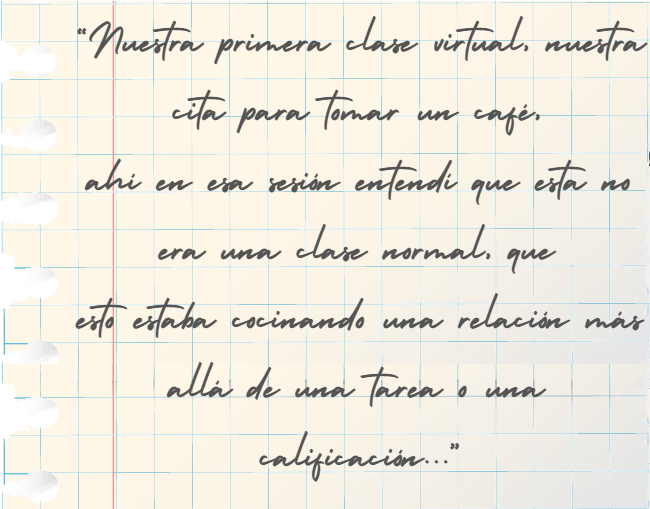 “Nuestra primera clase virtual, nuestra
cita para tomar un café,
ahí en esa sesión entendí que esta no
era una clase normal, que
esto estaba cocinando una relación más
allá de una tarea o una
calificación...”